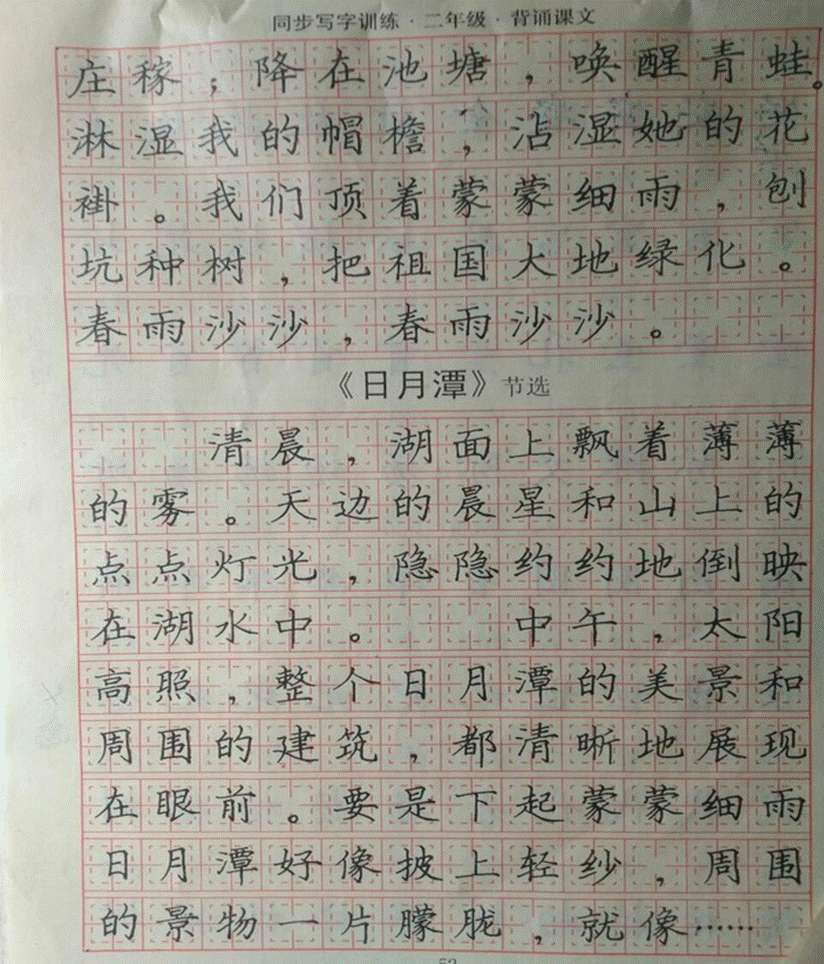 同步写字训练·二年级·背诵课文
庄稼；降在池塘，唤醒青蛙。
淋湿我的帽檐，沾湿她的花
褂。我们顶着蒙蒙细雨，刨
坑种树，把祖国大地绿化。
春雨沙沙，春雨沙沙。
《日月潭》节选
清晨，湖面上飘着薄薄
的雾。天边的晨星和山上的
点点灯光，隐隐约约地倒映
在湖水中。 中午，太阳
高照，整个日月潭的美景和
周围的建筑，都清晰地展现
在眼前。要是下起蒙蒙细雨
日月潭好像披上轻纱，周围
的景物一片朦胧，就像……
52